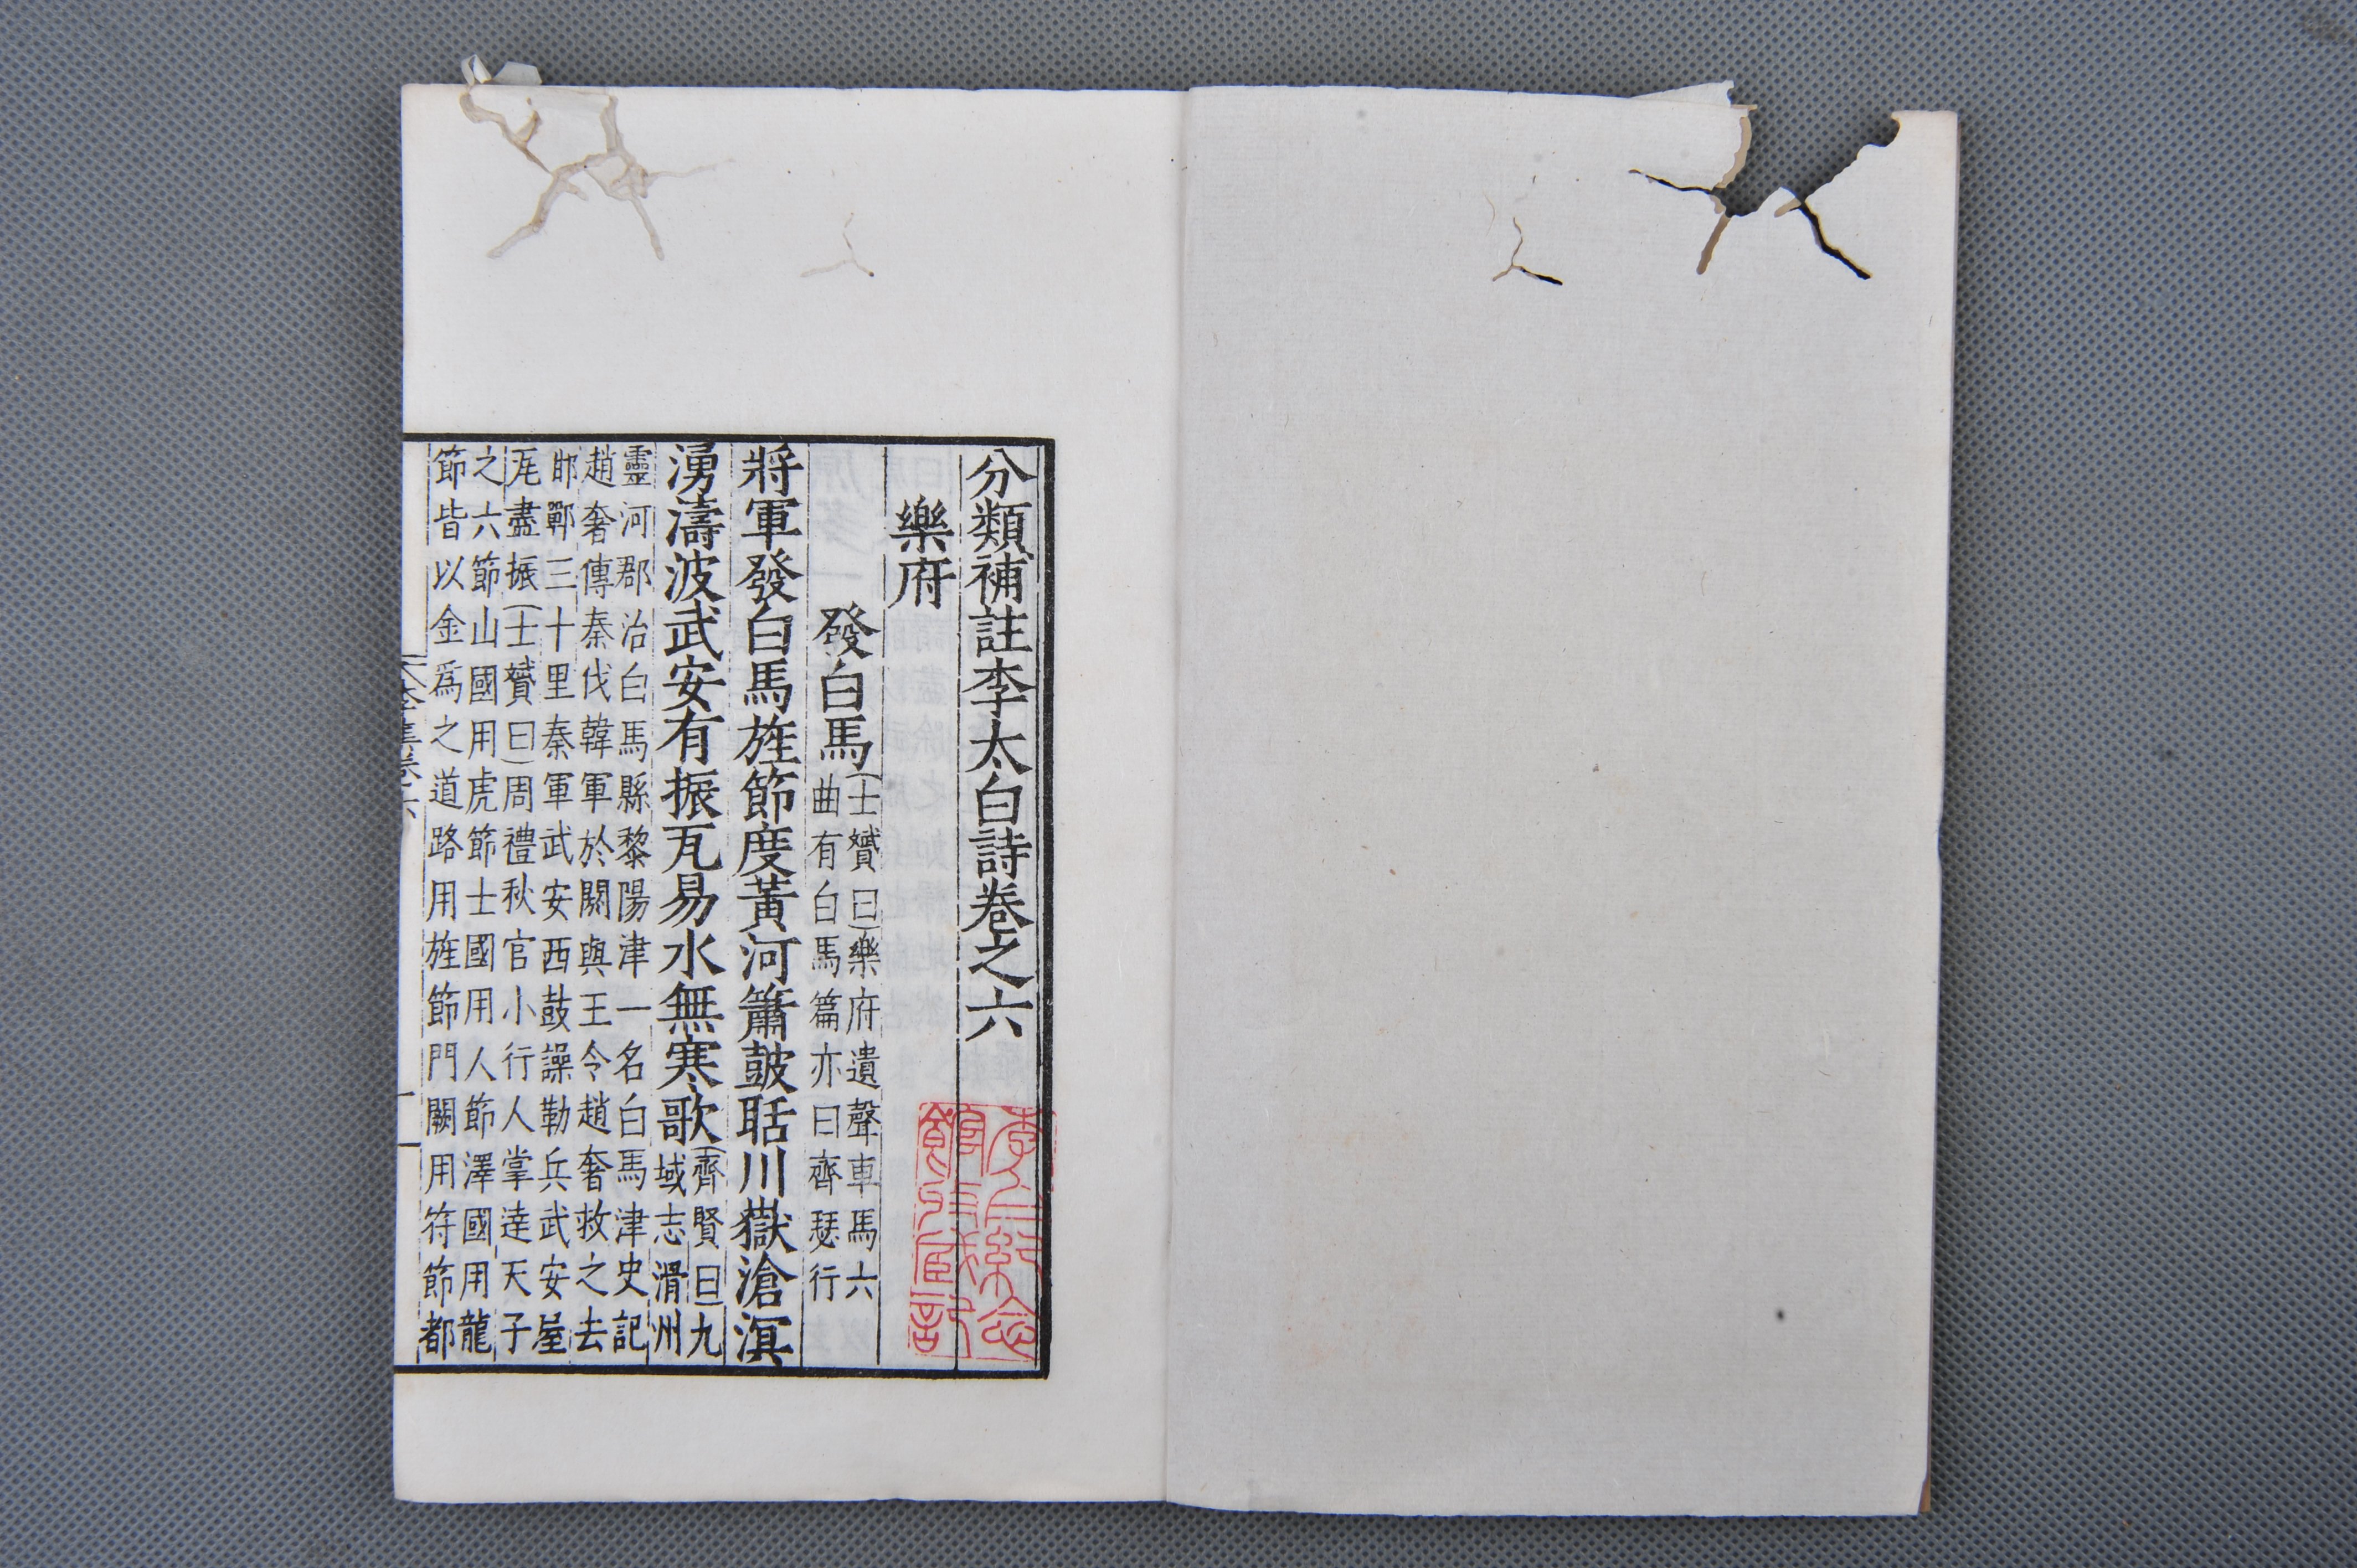 分類補註李太白詩卷之六
樂府
發白馬
士贇曰樂府遺聲車馬六
曲有白馬篇亦曰齊瑟行
將軍發白馬旌節度黃河簫鼓聒川嶽滄溟
湧濤波武安有振瓦易水無寒歌
齊賢曰九
域志滑州
靈河郡治白馬縣黎陽津一名白馬津史記
趙奢傳秦伐韓軍於閼與王令趙奢救之去
邯鄲三十里秦軍武安西鼓譟勒兵武安屋
瓦盡振士贇曰周禮秋官小行人掌達天子
之六節山國用虎節士國用人節澤國用龍
節皆以金爲之道路用旌節門關用符節都